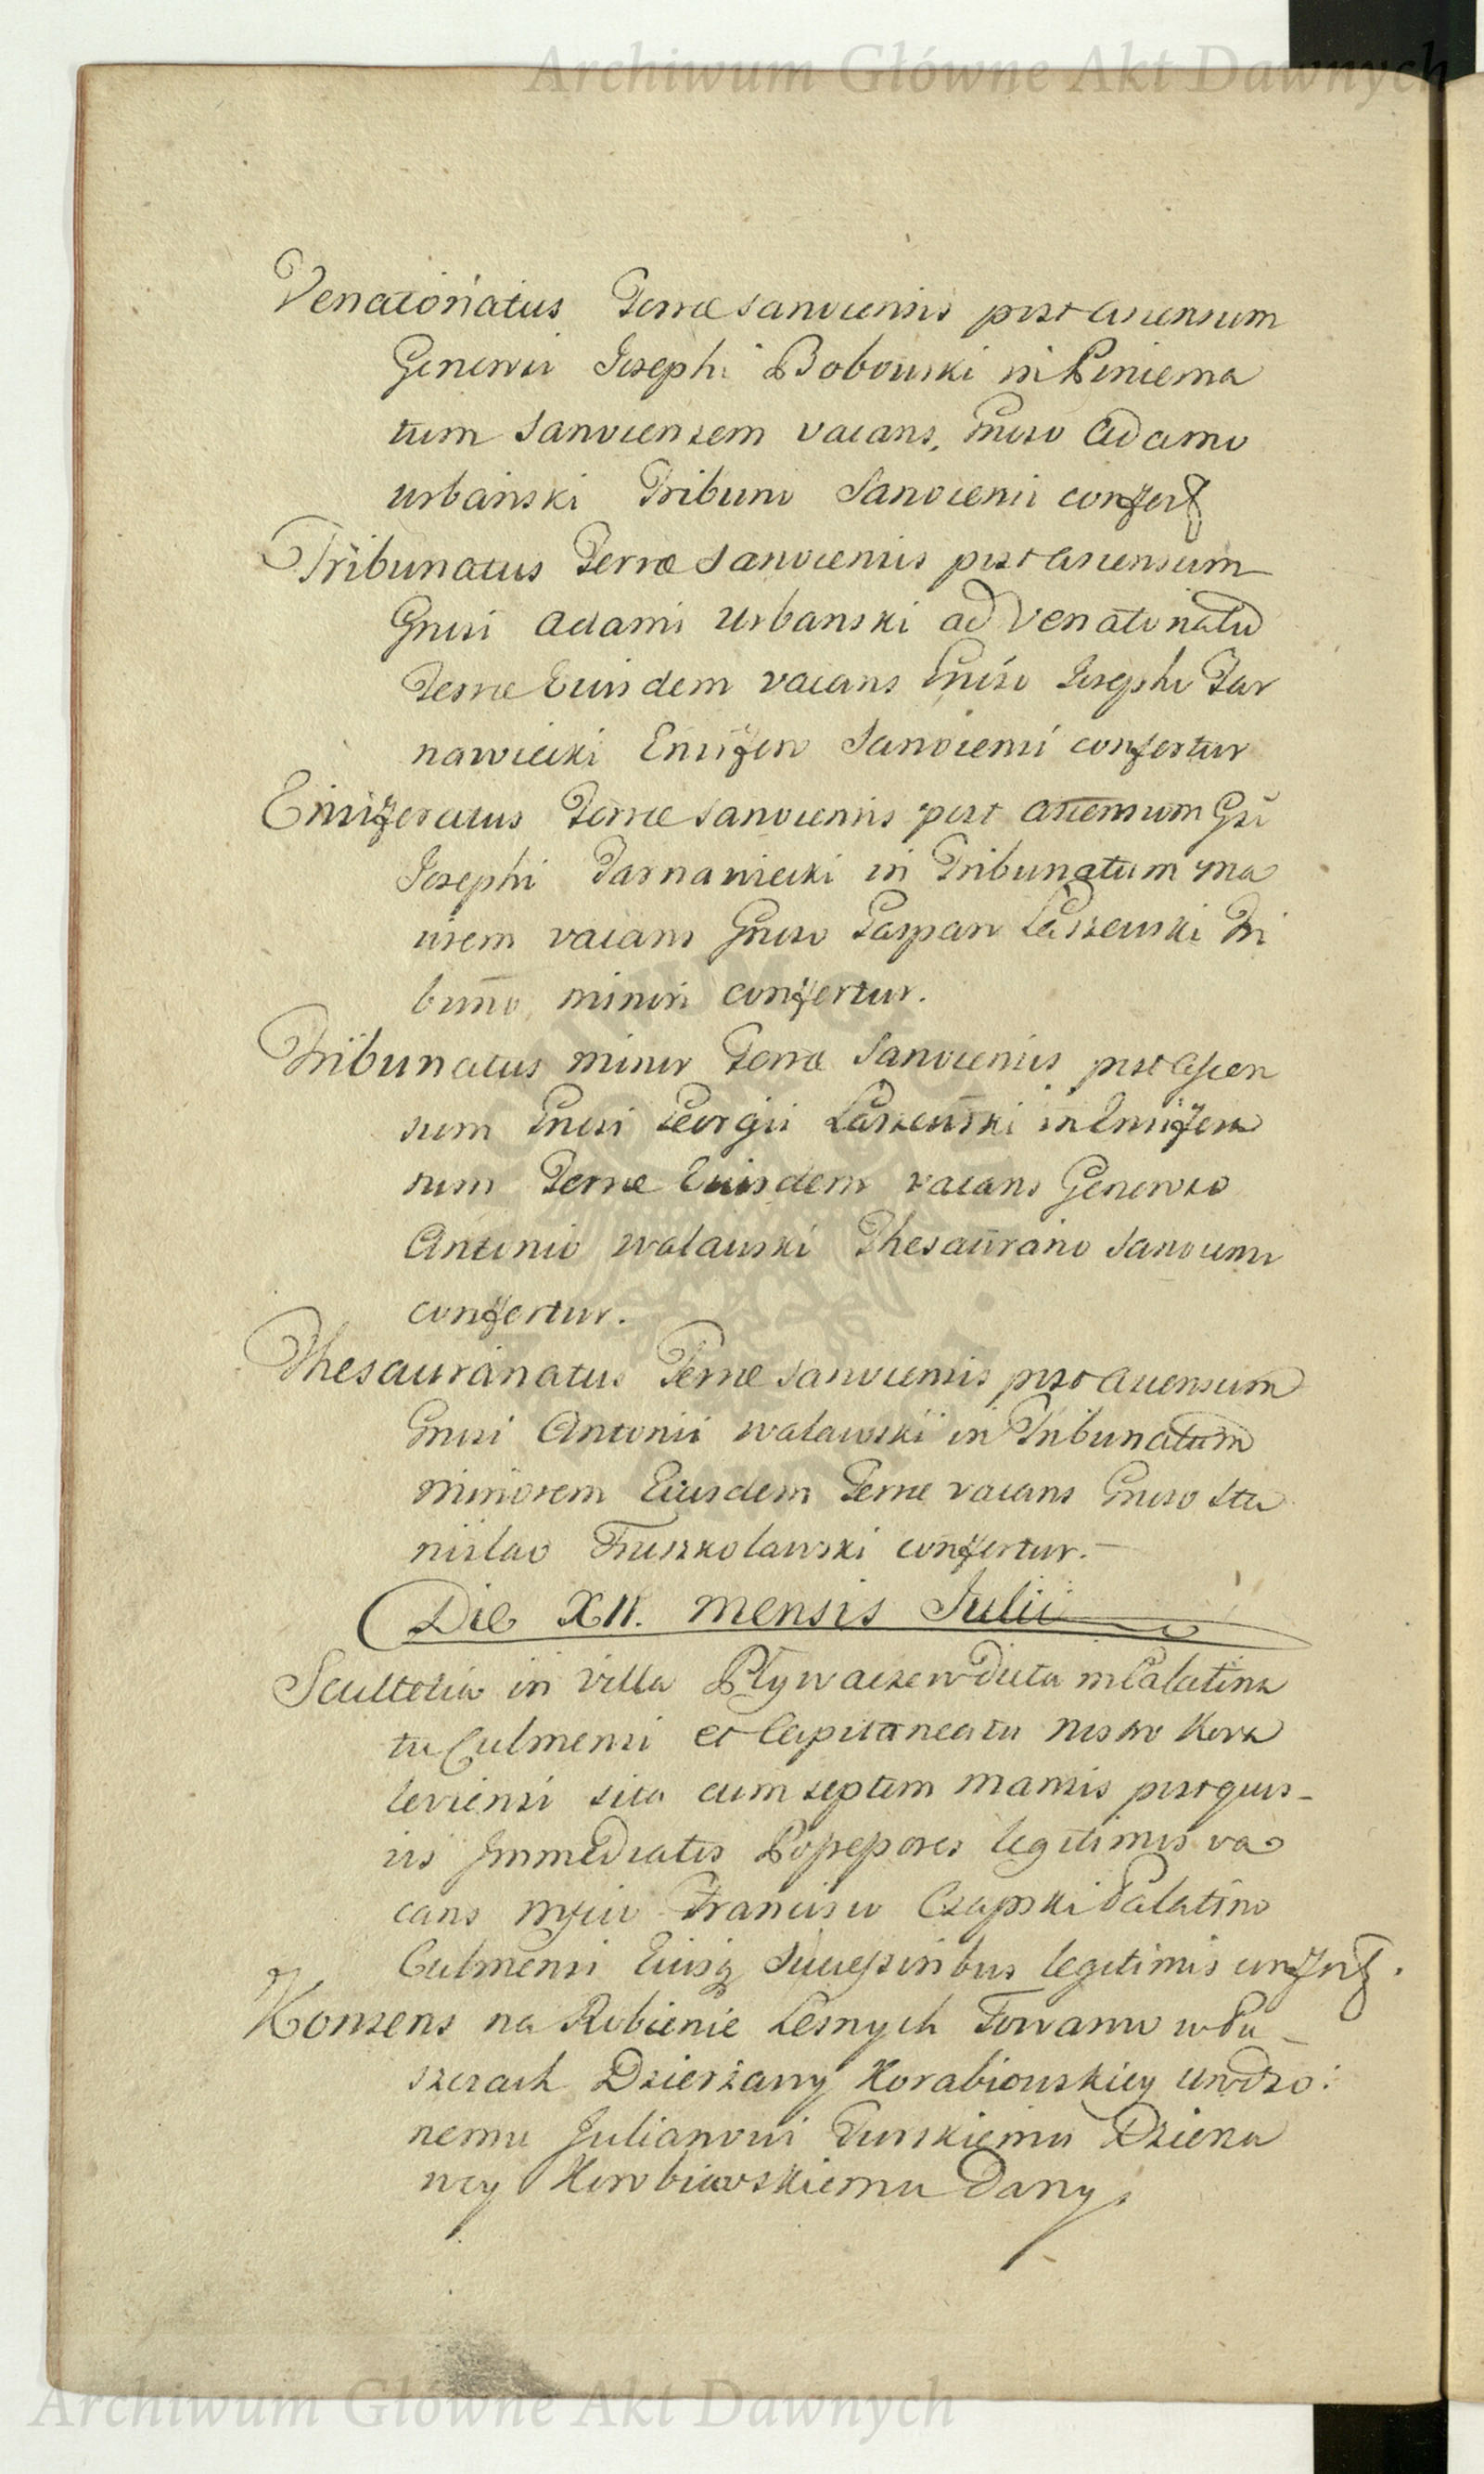 Archiwum Główne Akt Dawnych
Venatoriatus Terræ Sanocensis post ascensum
Generosi Josephi Bobowski in Pincerna
tum Sanocensem vacans, Gnoso Adamo
Urbański Tribuno Sanocensi confertr
Tribunatus Terræ Sanocensis post ascensum
Gnosi Adami Urbanski ad Venatoriatū
Terræ Eiusdem vacans Gnoso Josepho Tar
nawiecki Ensifero Sanocensi confertur
Ensiferatus Terræ Sanocensis post ascensum Gsi
Josephi Tarnawiecki in Tribunatum ma
iorem vacans Gnoso Gaspari Laszewski Tri
buno minori confertur.
Tribunatus minor Terræ Sanocensis post ascen
sum Gnosi Georgii Laszewski in Ensifera
tum Terræ Eiusdem vacans Generoso
Antonio Walawski Thesaurario Sanocensi
confertur.
Thesauranatus Terræ Sanocensis post ascensum
Gnosi Antonii Walawski in Tribunatum
minorem Eiusdem Terræ vacans Gnoso Sta
nislao Truszkolawski confertur.
Die XII. mensis Julii
Scultetia in Villa Plywaczewo dicta in Palatina
tu Culmensi et Capitaneatu nostro Kowa
leviensi sita cum septem mansis post quos-
vis Immediatos Possessores legitimos va
cans Francisco Czapski Palatino
Culmensi Eiusq Successoribus legitimis confertr.
Konsens na Robienie Lesnych Towarow w Pu-
szczach Dzierżawy Korabiowskiey Urodzo:
nemu Julianowi Turskiemu Dzierza
wcy Korobiewskiemu Dany.
Archiwum Główne Akt Dawnych